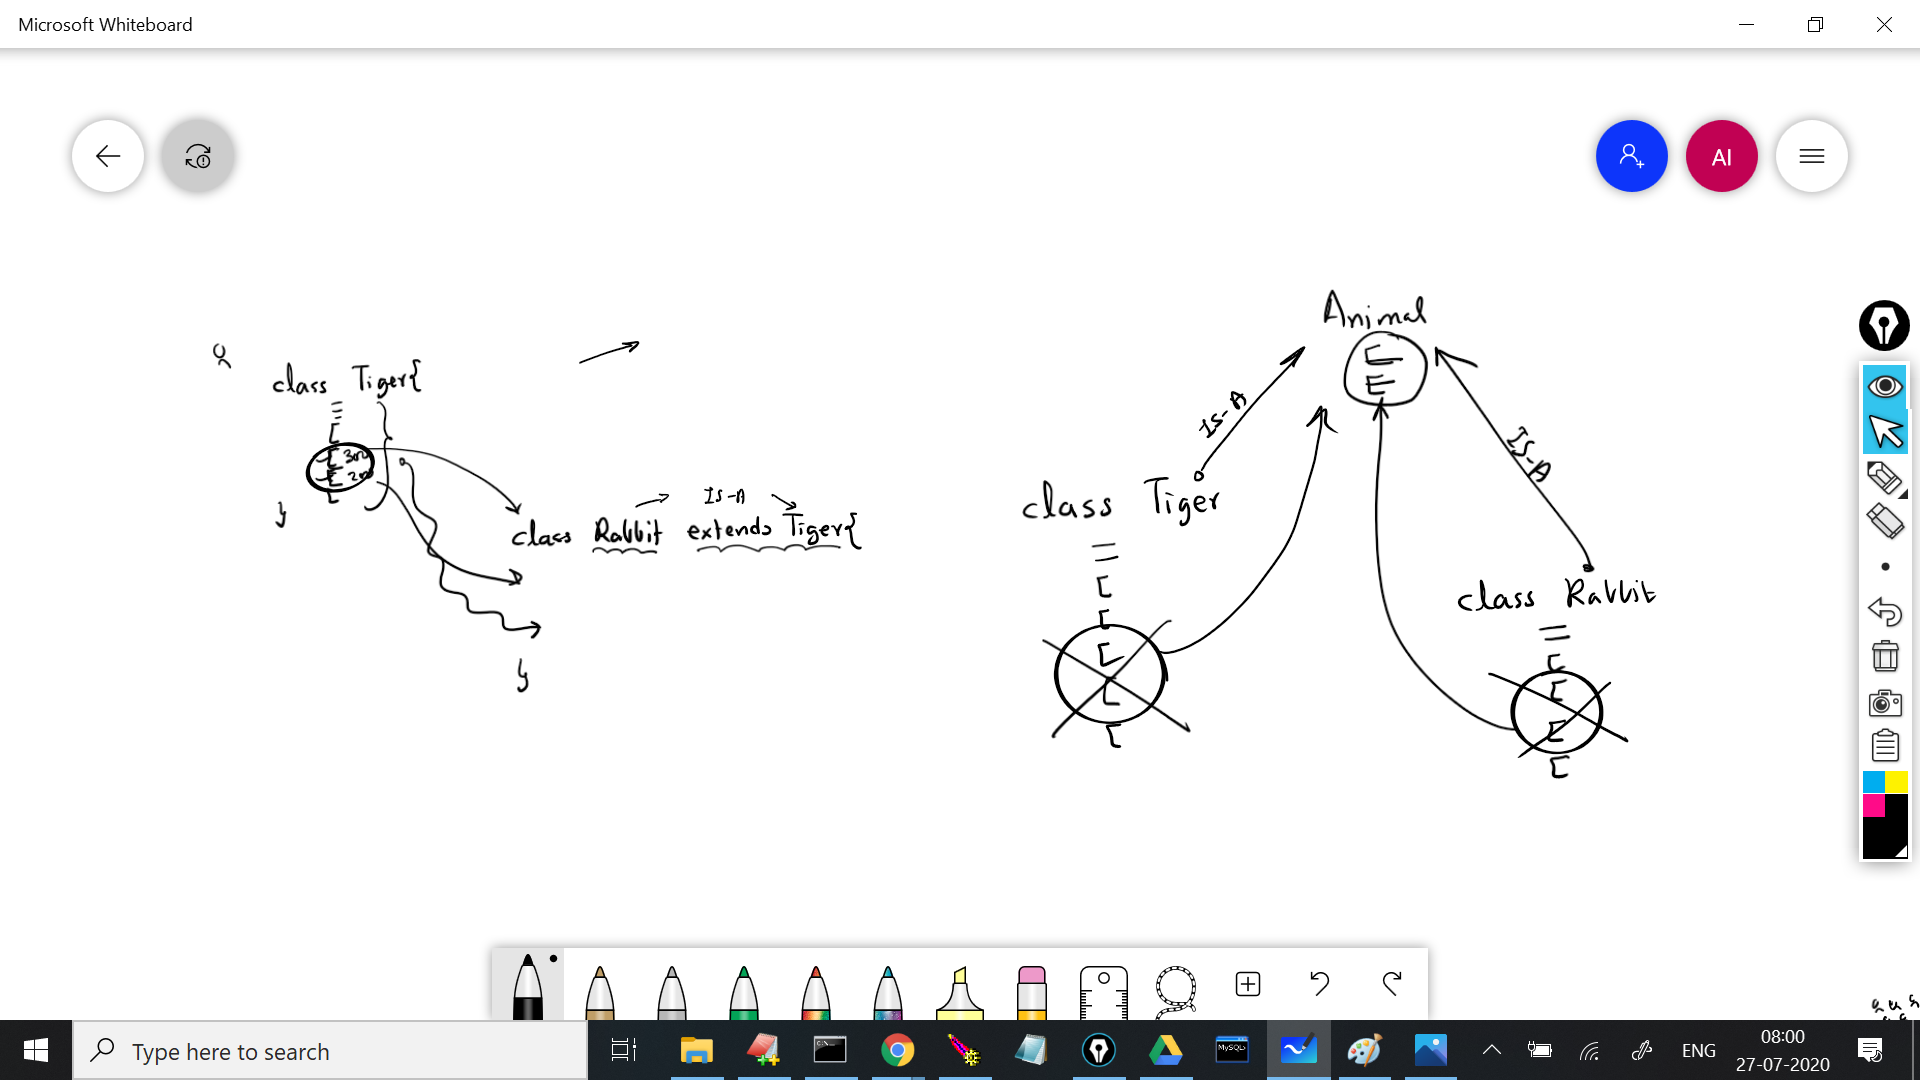 Microsoft Whiteboard
AI
class Tiger{
class Rabbit extends Tiger{
IS-A
Animal
IS-A
IS-A
class Tiger
class Rabbit
Type here to search
MySQL
ENG
08:00
27-07-2020